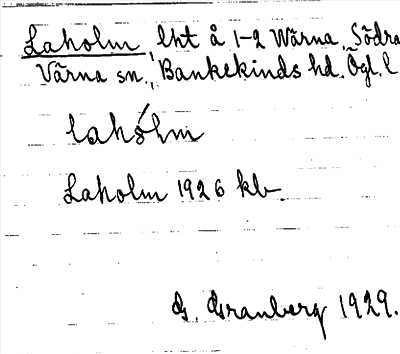 Laholm, lht å 1-2 Wärna, Södra
Värna sn., Bankekinds hd. Ögl. l
lahólm
Laholm 1926 kb.
G. Granberg 1929.